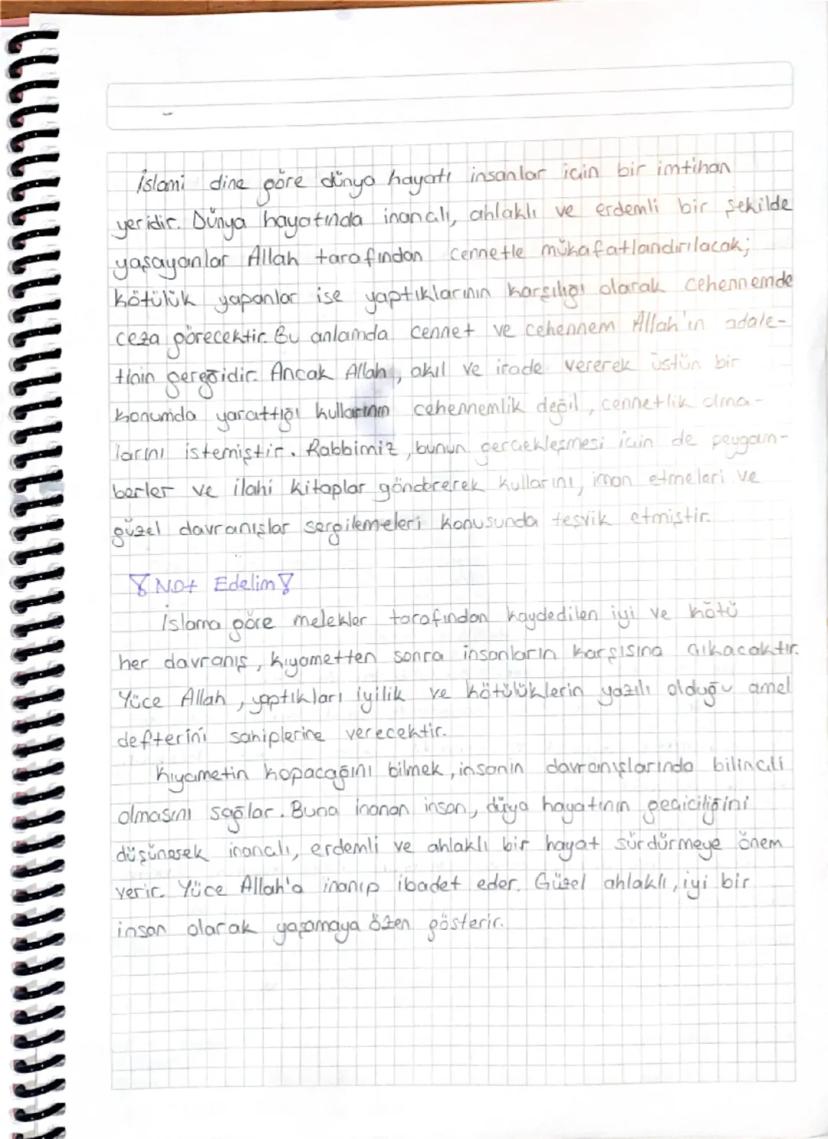 İslami dine göre dünya hayatı insanlar için bir imtihan
yeridir. Dünya hayatında inançlı, ahlaklı ve erdemli bir şekilde
yaşayanlar Allah tarafından cennetle mükafatlandırılacak;
kötülük yapanlar ise yaptıklarının karşılığı olarak cehennemde
ceza görecektir. Bu anlamda cennet ve cehennem Allah'ın adale-
tinin gereğidir. Ancak Allah, akıl ve irade vererek üstün bir
konumda yarattığı kullarının cehennemlik değil, cennetlik olma-
larını istemiştir. Rabbimiz, bunun gerçekleşmesi için de peygam-
berler ve ilahi kitaplar göndererek kullarını, iman etmeleri ve
güzel davranışlar sergilemeleri konusunda teşvik etmiştir.
Not Edelim
İslama göre melekler tarafından kaydedilen iyi ve kötü
her davranış, kıyametten sonra insanların karşısına çıkacaktır.
Yüce Allah, yaptıkları iyilik ve kötülüklerin yazılı olduğu amel
defterini sahiplerine verecektir.
Kıyametin kopacağını bilmek, insanın davranışlarında bilinçli
olmasını sağlar. Buna inanan insan, düya hayatının geçiciliğini
düşünerek inançlı, erdemli ve ahlaklı bir hayat sürdürmeye önem
verir. Yüce Allah'a inanıp ibadet eder. Güzel ahlaklı, iyi bir
insan olarak yaşamaya özen gösterir.